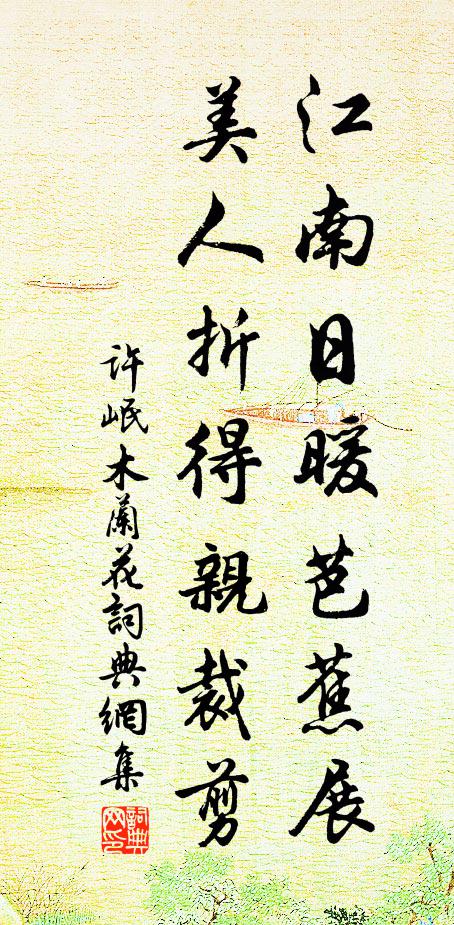 江南日暖芭蕉展
美人折得親裁剪
許岷木蘭花詞典網集
詞典网印